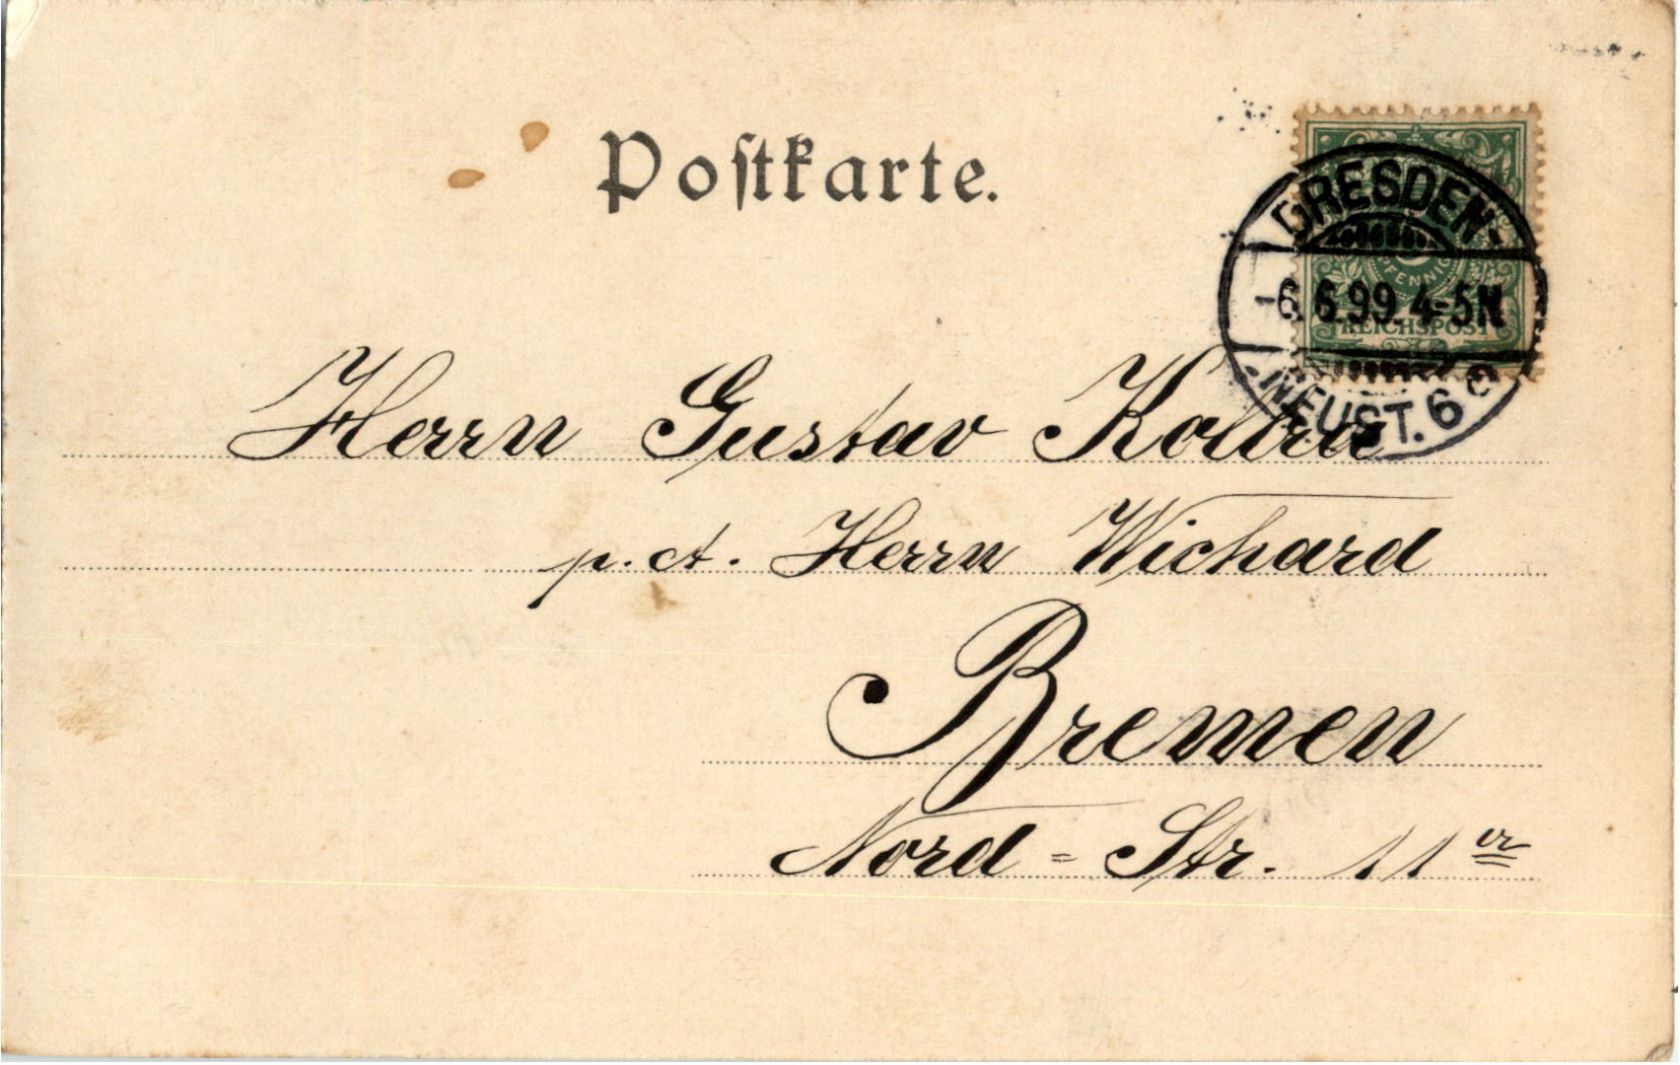 Postkarte.
DRESDEN-
PFENNIG
-6.6.99.4-5N
REICHSPOST
-NEUST. 6 c
Herrn Gustav
p. A. Herrn Wichard
Bremen
Nord-Str. 11